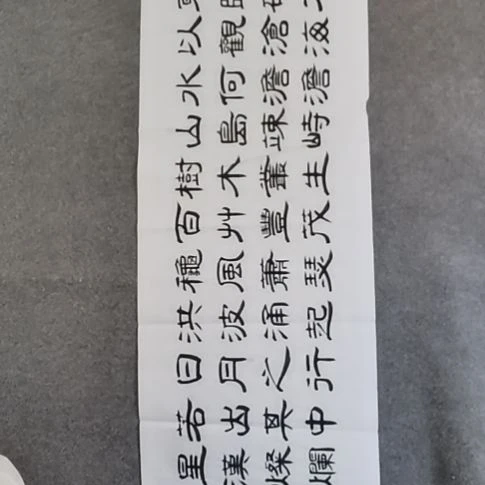 以觀滄海
水何澹澹
山島竦峙
樹木叢生
百艸豐茂
穐風蕭瑟
洪波涌起
日月之行
若出其中
星漢燦爛